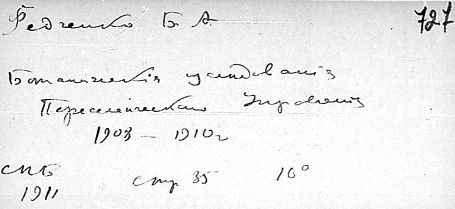 Федченко Б А 727
Ботаническія изследованія
Переселенческаго Управленія
1903 – 1910 г
СПБ стр 35 16°
1911